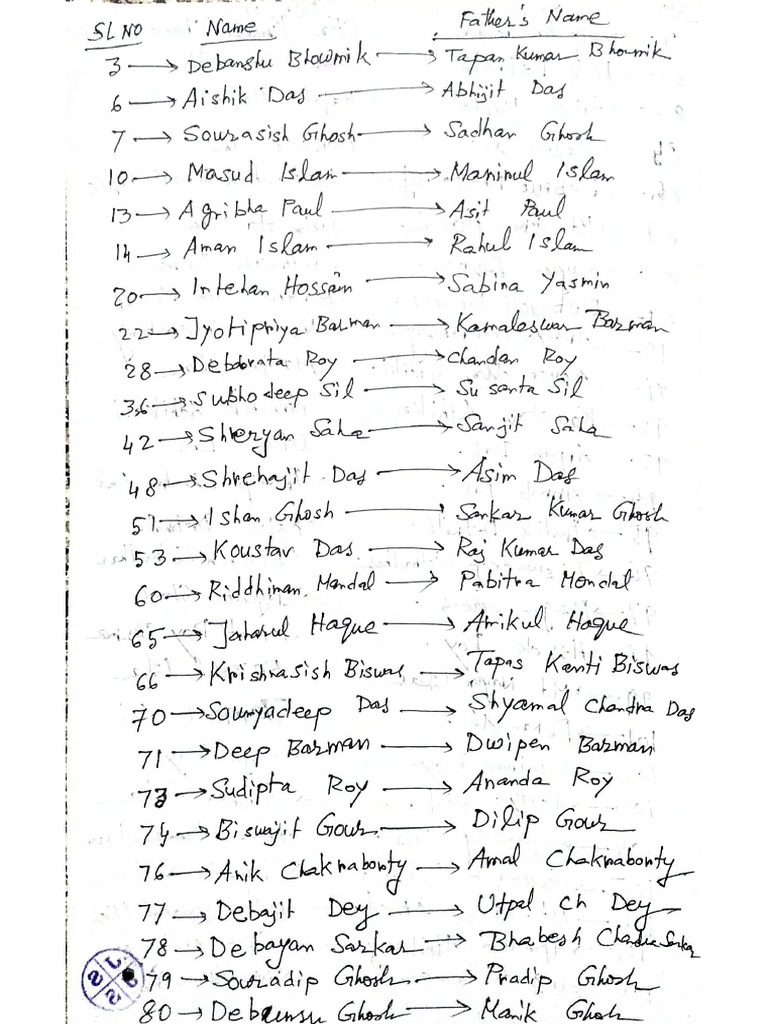 SL NO Name Father's Name
3 → Debanshu Bhowmik → Tapan Kumar Bhowmik
6 → Aishik Das → Abhijit Das
7 → Sourasish Ghosh → Sadhan Ghosh
10 → Masud Islam → Maninul Islam
13 → Agribha Paul → Asit Paul
14 → Aman Islam → Rahul Islam
20 → Intehan Hossain → Sabina Yasmin
22 → Jyotipriya Barman → Kamaleswar Barman
28 → Debabrata Roy → Chandan Roy
36 → Subhodeep Sil → Susanta Sil
42 → Shreyan Saha → Sanjit Saha
48 → Shrehajit Das → Asim Das
51 → Ishan Ghosh → Sankar Kumar Ghosh
53 → Koustav Das → Raj Kumar Das
60 → Riddhiman Mondal → Pabitra Mondal
65 → Jaharul Haque → Amikul Haque
66 → Krishnasish Biswas → Tapas Kanti Biswas
70 → Soumyadeep Das → Shyamal Chandra Das
71 → Deep Barman → Dwipen Barman
73 → Sudipta Roy → Ananda Roy
74 → Biswajit Gour → Dilip Gour
76 → Anik Chakraborty → Amal Chakraborty
77 → Debajit Dey → Utpal ch Dey
78 → Debayan Sarkar → Bhabesh Chandra Sarkar
79 → Souradip Ghosh → Pradip Ghosh
80 → Ghosh → Manik Ghosh